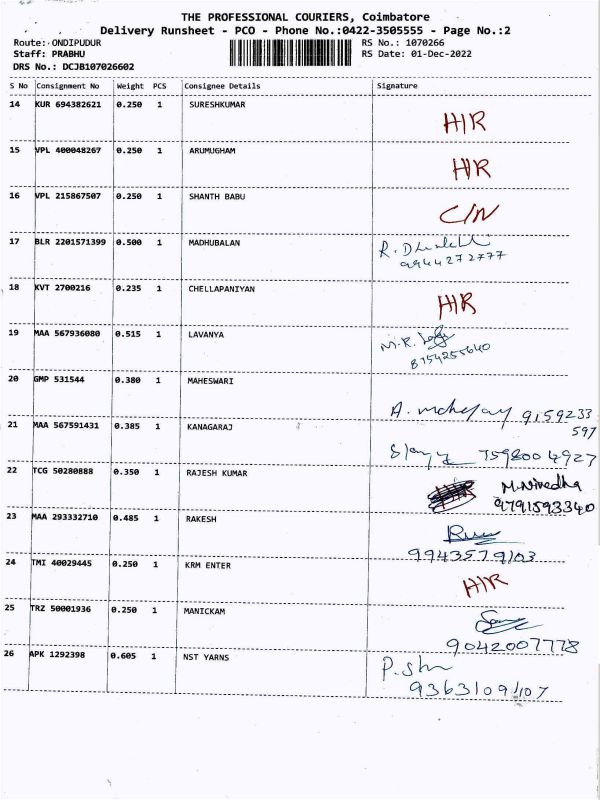 THE PROFESSIONAL COURIERS, Coimbatore
Delivery Runsheet - PCO - Phone No.:0422-3505555 - Page No.:2
Route: ONDIPUDUR RS No.: 1070266
Staff: PRABHU RS Date: 01-Dec-2022
DRS No.: DCJB107026602
S No Consignment No Weight PCS Consignee Details Signature
14 KUR 694382621 0.250 1 SURESHKUMAR
H/R
15 VPL 400048267 0.250 1 ARUMUGHAM
H/R
16 VPL 215867507 0.250 1 SHANTH BABU
C/N
17 BLR 2201571399 0.500 1 MADHUBALAN
9944272777
18 KVT 2700216 0.235 1 CHELLAPANIYAN
H/R
19 MAA 567936080 0.515 1 LAVANYA
M.R.
8754255640
20 GMP 531544 0.380 1 MAHESWARI
A. 9159233
597
21 MAA 567591431 0.385 1 KANAGARAJ
7598004927
22 TCG 50280888 0.350 1 RAJESH KUMAR
M.Nivedha
9791593340
23 MAA 293332710 0.485 1 RAKESH
9943579103
24 TMI 40029445 0.250 1 KRM ENTER
H/R
25 TRZ 50001936 0.250 1 MANICKAM
9042007778
26 APK 1292398 0.605 1 NST YARNS
9363109107